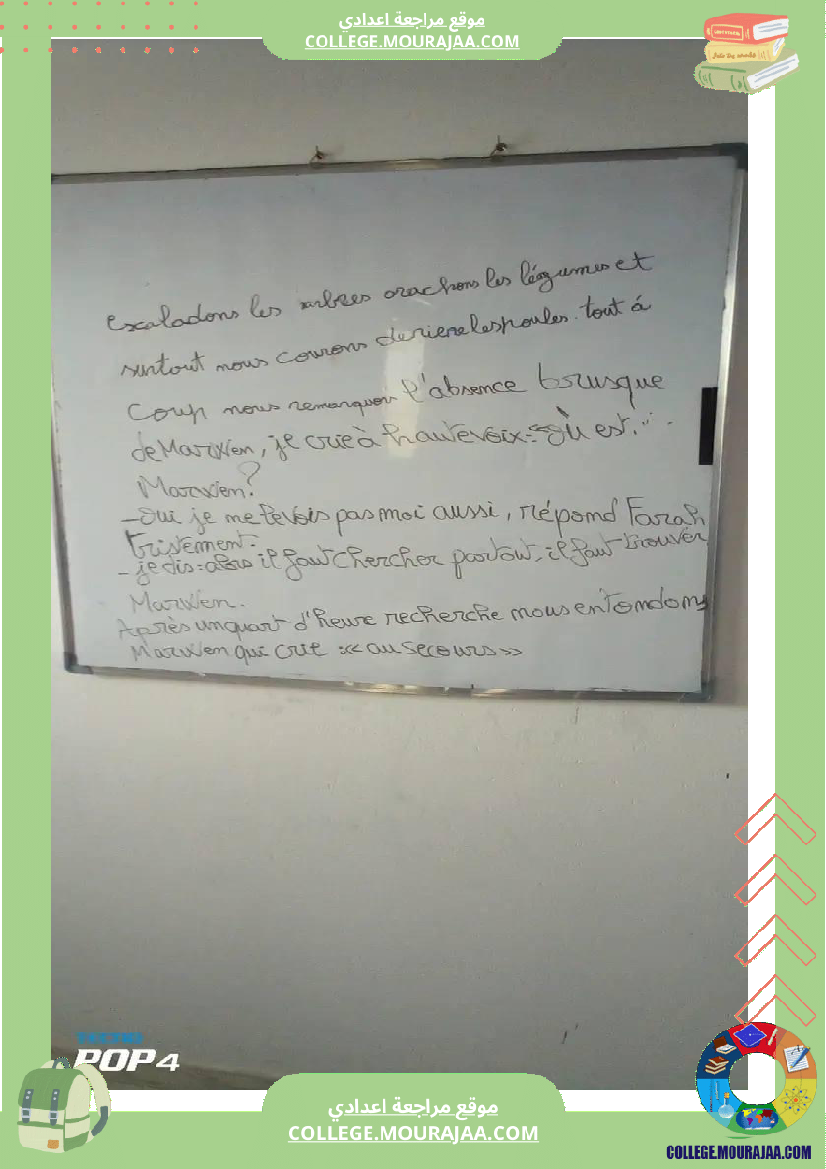 موقع مراجعة اعدادي
COLLEGE.MOURAJAA.COM
escaladons les arbres arachons les légumes et
surtout nous courons derierelespoules. tout à
coup nous remarquons l'absence brusque
de Marwen, je crie à hautevoix: Où est.
Marwen?
-Oui je ne levois pas moi aussi, répond Farah
tristement.
- je dis: alors il faut chercher partout, il faut trouver
Marwen.
Après unquart d'heure recherche nous entondons
Marwen qui crie :<< au secours>>
POP 4
موقع مراجعة اعدادي
COLLEGE.MOURAJAA.COM
COLLEGE.MOURAJAA.COM